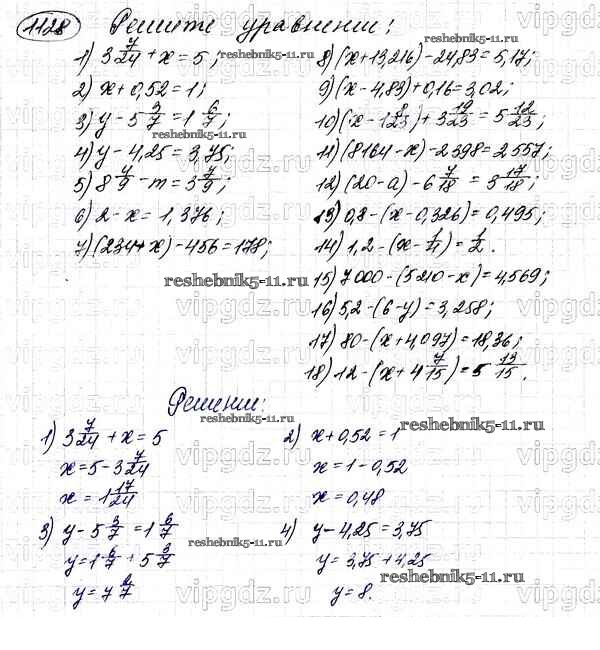 1128 Решите уравнения:
1) 3 7/24 + x = 5;
2) x + 0,52 = 1;
3) y - 5 3/7 = 1 6/7;
4) y - 4,25 = 3,75;
5) 8 4/9 - m = 3 7/9;
6) 2 - x = 1,376;
7) (234 + x) - 456 = 178;
8) (x + 13,216) - 24,83 = 5,17;
9) (x - 4,83) + 0,16 = 3,02;
10) (x - 1 8/23) + 3 19/23 = 5 12/23;
11) (8164 - x) - 2398 = 2557;
12) (20 - a) - 6 7/18 = 3 17/18;
13) 0,8 - (x - 0,326) = 0,495;
14) 1,2 - (x - 1/4) = 1/2.
15) 7000 - (5210 - x) = 4,569;
16) 5,2 - (6 - y) = 3,258;
17) 80 - (x + 4,097) = 18,36;
18) 12 - (x + 4 7/15) = 5 13/15.
reshebnik5-11.ru
reshebnik5-11.ru
Решения:
reshebnik5-11.ru
1) 3 7/24 + x = 5
x = 5 - 3 7/24
x = 1 17/24
2) x + 0,52 = 1
x = 1 - 0,52
x = 0,48
reshebnik5-11.ru
3) y - 5 3/7 = 1 6/7
y = 1 6/7 + 5 3/7
y = 7 2/7
4) y - 4,25 = 3,75
y = 3,75 + 4,25
y = 8.
reshebnik5-11.ru
reshebnik5-11.ru
vipgdz.ru